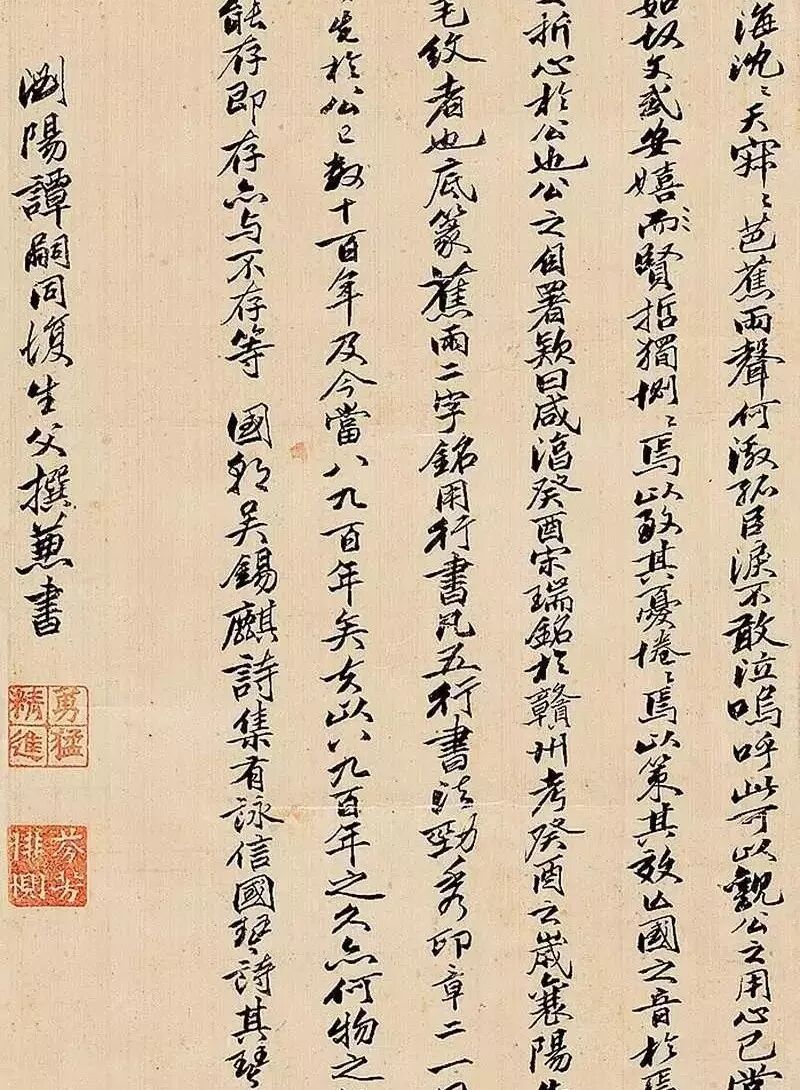 海沈々天寐々芭蕉雨聲何激孤臣淚不敢泣嗚呼此可以觀公之用心已當
如故文武安嬉而賢哲獨惻々焉以致其憂惓々焉以策其效亡國之音於焉
折心於公也公之自署欵曰咸淳癸酉宋瑞銘於贛州考癸酉之歲襄陽
毛紋者也底篆蕉雨二字銘用行書凡五行書法勁秀印章二一
先於公已數十百年及今當八九百年矣夫以八九百年之久亦何物之
能存即存亦与不存等 國朝吳錫麒詩集有詠信國琴詩其琴
瀏陽譚嗣同復生父撰兼書
勇猛精進
芬芳悱惻